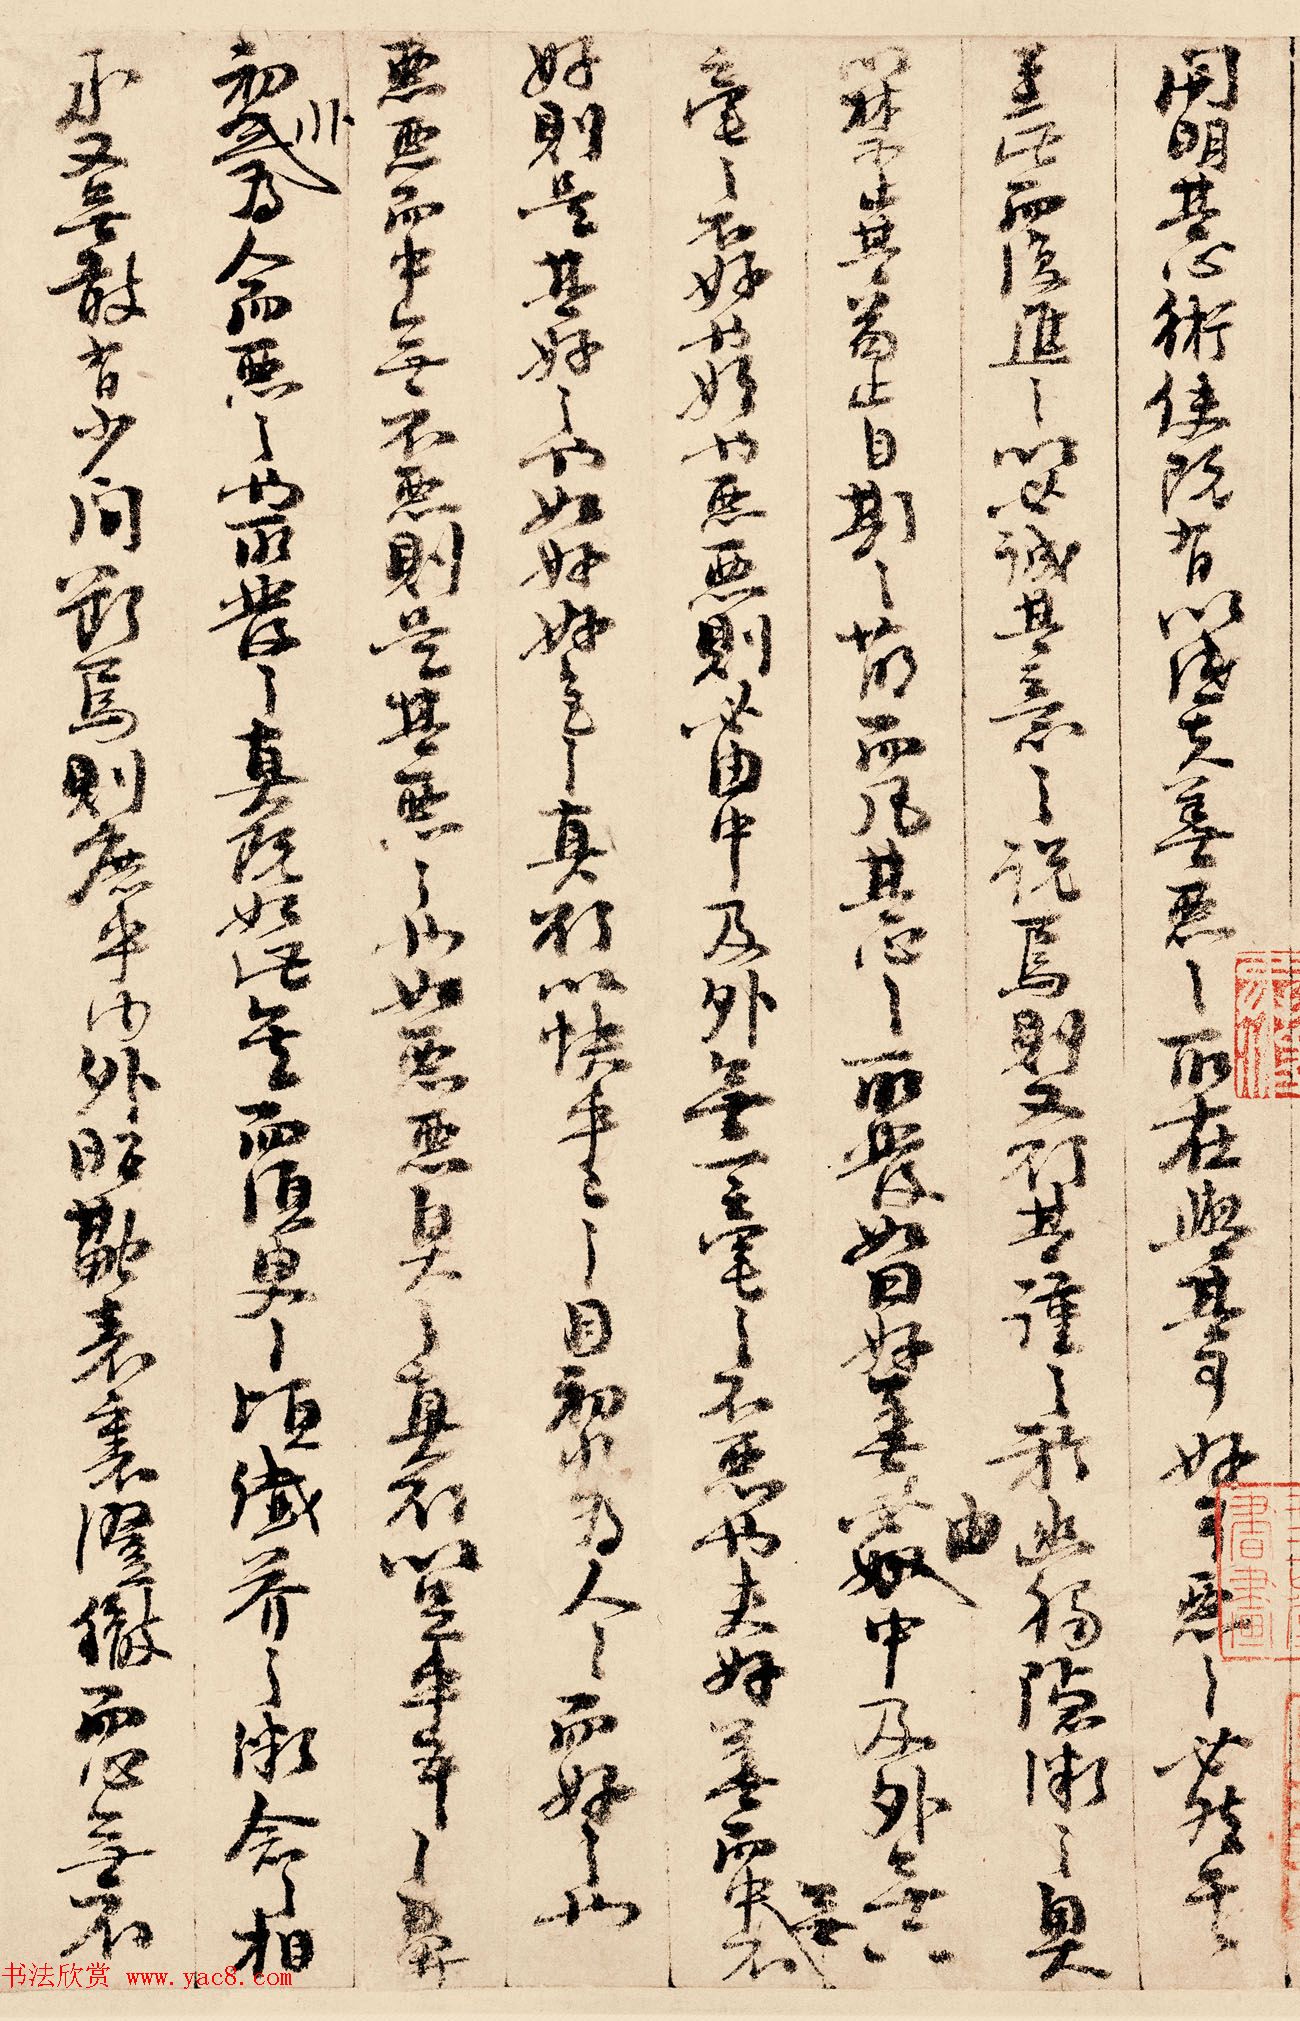 開明其心術使既有以識夫善惡之所在與其可好可惡之必然矣
至此而復進之以必誠其意之說焉則又欲其謹之於幽獨隱微之奧
以禁止其苟且自欺之萌而凡其心之所發如曰好善則必由中及外無一
毫之不好也如曰惡惡則必由中及外無一毫之不惡也夫好善而中無不
好則是其好之也如好好色之真欲以快乎己之目初非為人而好之也
惡惡而中無不惡則是其惡之也如惡惡臭之真欲以足乎己之鼻
初非為人而惡之也所發之真既如此矣而須臾之頃纖芥之微念念相
承又無敢有少間斷焉則庶乎內外昭融表裏澄徹而心無不
书法欣赏 www.yac8.com